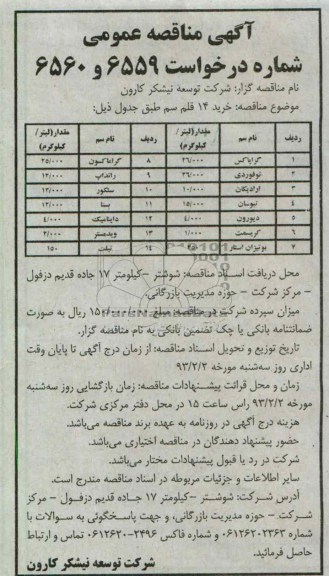 آگهی مناقصه عمومی
شماره درخواست ۶۵۵۹ و ۶۵۶۰
نام مناقصه گزار: شرکت توسعه نیشکر کارون
موضوع مناقصه: خرید ۱۴ قلم سم طبق جدول ذیل:
ردیف نام سم مقدار(لیتر/کیلوگرم) ردیف نام سم مقدار(لیتر/کیلوگرم)
۱ گزاپاکس ۲۶/۰۰۰ ۸ گراماکسون ۲۵/۰۰۰
۲ توفوردی ۲۶/۰۰۰ ۹ رانداپ ۱۲/۰۰۰
۳ ارادیکان ۱۰/۰۰۰ ۱۰ سنکور ۱۲/۰۰۰
۴ نبوسان ۱۵/۰۰۰ ۱۱ بستا ۱۲/۰۰۰
۵ دیورون ۴/۰۰۰ ۱۲ داینامیک ۴/۰۰۰
۶ کریسمت ۱/۰۰۰ ۱۳ ویدمستر ۲/۰۰۰
۷ یونیزان استار ۲۵۰ ۱۴ تیلت ۱۵۰
محل دریافت اسناد مناقصه: شوشتر –کیلومتر ۱۷ جاده قدیم دزفول
– مرکز شرکت – حوزه مدیریت بازرگانی.
میزان سپرده شرکت در مناقصه: مبلغ ریال به صورت
ضمانتنامه بانکی یا چک تضمین بانکی به نام مناقصه گزار.
تاریخ توزیع و تحویل اسناد مناقصه: از زمان درج آگهی تا پایان وقت
اداری روز سه‌شنبه مورخه ۹۳/۲/۲
زمان و محل قرائت پیشنهادات مناقصه: زمان بازگشایی روز سه‌شنبه
مورخه ۹۳/۲/۲ راس ساعت ۱۵ در محل دفتر مرکزی شرکت.
هزینه درج آگهی در روزنامه به عهده برنده مناقصه می‌باشد.
حضور پیشنهاد دهندگان در مناقصه اختیاری می‌باشد.
شرکت در رد یا قبول پیشنهادات مختار می‌باشد.
سایر اطلاعات و جزئیات مربوطه در اسناد مناقصه مندرج است.
آدرس شرکت: شوشتر –کیلومتر ۱۷ جاده قدیم دزفول – مرکز
شرکت – حوزه مدیریت بازرگانی، و جهت پاسخگوئی به سوالات با
شماره ۰۶۱۲۶۲۰۲۳۶۳ و شماره فاکس ۲۴۹۶-۰۶۱۲۶۲۰ تماس و ارتباط
حاصل فرمائید.
شرکت توسعه نیشکر کارون